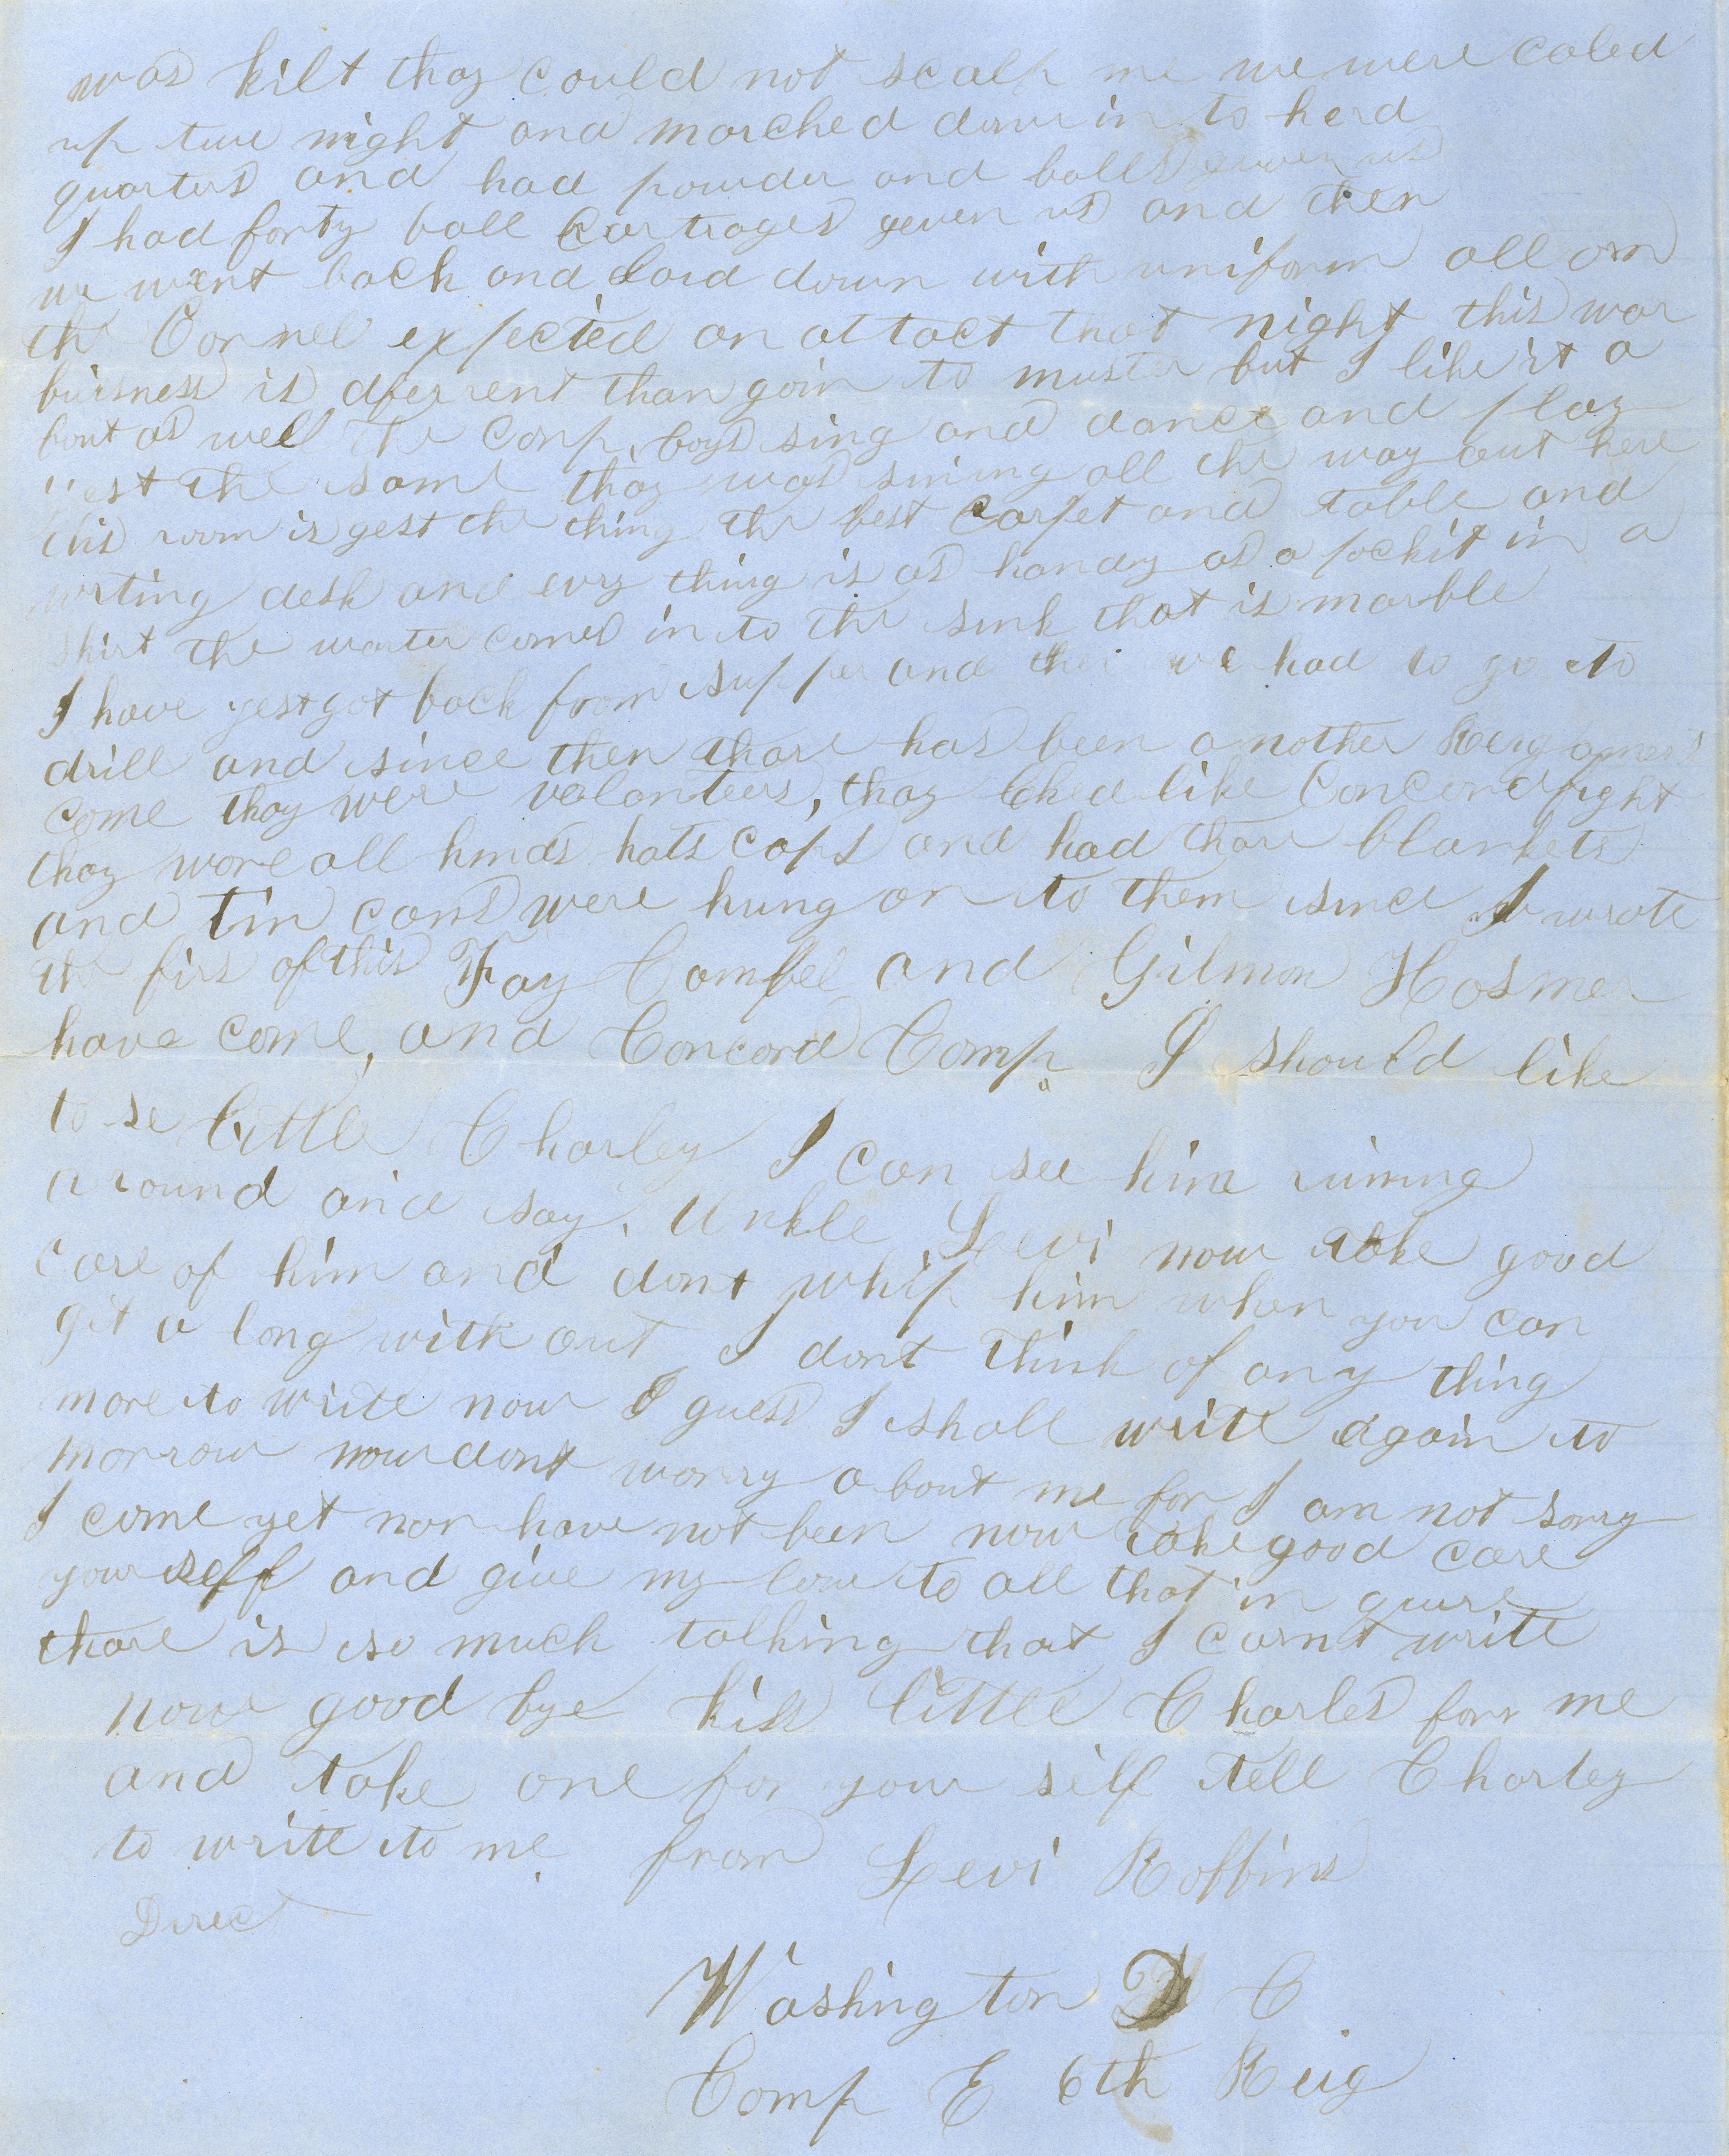 was kilt thay could not scalp me we were caled
up tue night and marched down in to hed
quarters and had powder and balls given us
I had forty ball cartrages geven us and then
we went back and laid down with uniform all on
the Cornel expected an attact that night this war
buisness is dferrent than goin to muster but I like it a
bout as well The Comp boys sing and dance and play
yest the same thay was sining all the way out here
this room is yest the thing the best carpet and table and
writing desk and evry thing is as handy as a pockit in a
shirt the warter comes in to the sink that is marble
I have yest got back from supper and then we had to go to
drill and since then thare has been a nother Reigament
come thay were volanteers, thay loked like Concord fight
thay wore all kinds hats caps and had thare blankets
and tin cans were hung on to them since I wrote
the firs of this Fay Campbel and Gilman Hosmer
have come, and Concord Comp I should like
to se little Charley I can see him runing
a round and say. Unkle Levi now take good
care of him and dont whip him when you can
git a long with out I dont think of any thing
more to write now I guess I shall write again to
morrow now dont worry a bout me for I am not sorry
I come yet nor have not been now take good care
your self and give my love to all that in quire
thare is so much talking that I carnt write
now good bye kiss little Charles for me
and take one for your self tell Charley
to write to me from Levi Robbins
Direct
Washington D C
Comp E 6th Reig